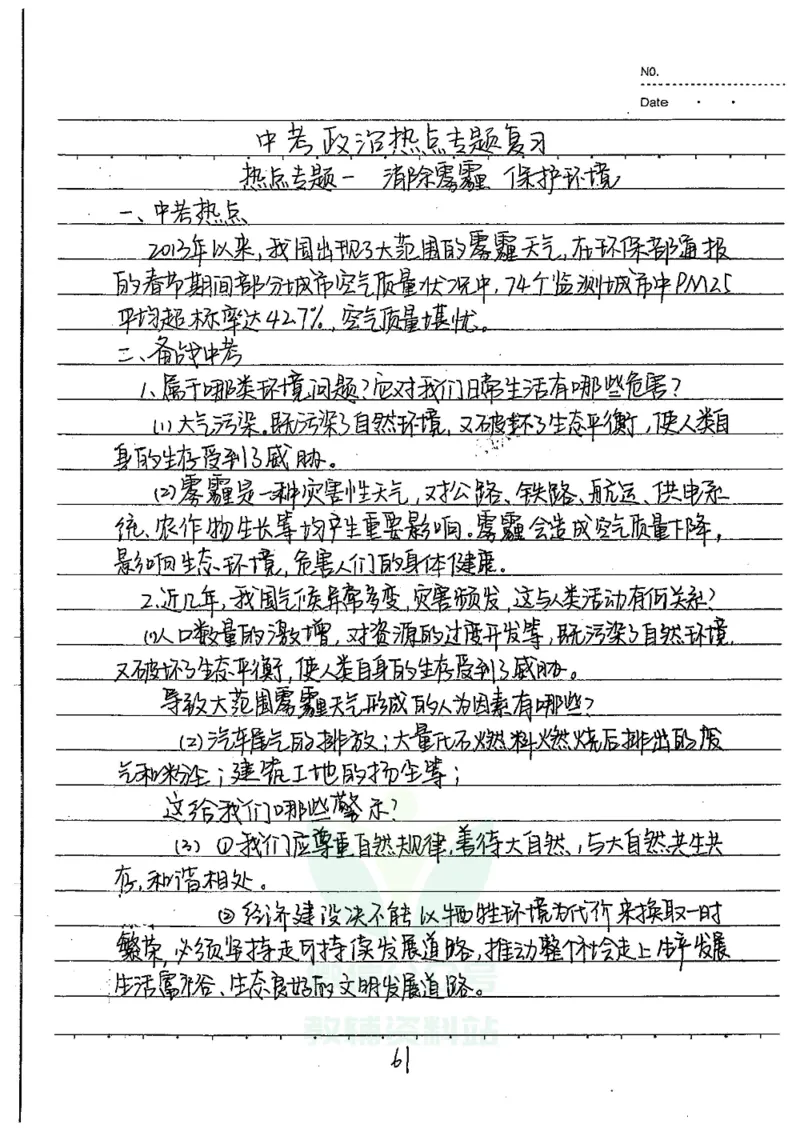 NO.
Date
中考政治热点专题复习
热点专题一 消除雾霾 保护环境
一、中考热点
2013年以来,我国出现了大范围的雾霾天气,在环保部通报
的春节期间部分城市空气质量状况中,74个监测城市中PM2.5
平均超标率达42.7%,空气质量堪忧。
二、备战中考
1、属于哪类环境问题?它对我们日常生活有哪些危害?
(1)大气污染。既污染了自然环境,又破坏了生态平衡,使人类自
身的生存受到了威胁。
(2)雾霾是一种灾害性天气,对公路、铁路、航运、供电系
统、农作物生长等均产生重要影响。雾霾会造成空气质量下降,
影响生态环境,危害人们的身体健康。
2、近几年,我国气候异常多变,灾害频发,这与人类活动有何关系?
(1)人口数量的激增,对资源的过度开发等,既污染了自然环境,
又破坏了生态平衡,使人类自身的生存受到了威胁。
导致大范围雾霾天气形成的人为因素有哪些?
(2)汽车尾气的排放;大量化石燃料燃烧后排出的废
气和粉尘;建筑工地的扬尘等;
这给我们哪些警示?
(3)①我们应尊重自然规律,善待大自然,与大自然共生共
存,和谐相处。
②经济建设决不能以牺牲环境为代价来换取一时
繁荣,必须坚持走可持续发展道路,推动整个社会走上生产发展
生活富裕、生态良好的文明发展道路。
教辅资料站
61